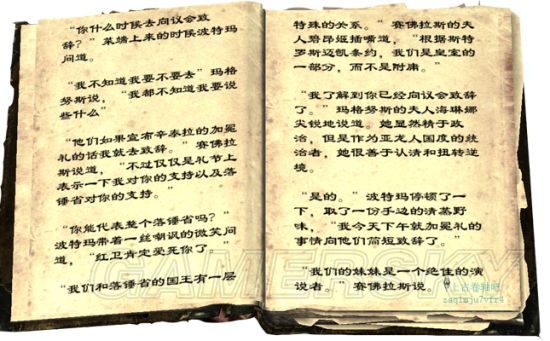 “你什么时候去向议会致
辞？”菜端上来的时候波特玛
问道。
“我不知道我要不要去”玛格
努斯说，“我都不知道我要说
些什么”
“他们如果宣布辛泰拉的加冕
礼的话我就去致辞。”赛佛拉
斯说道，“不过仅仅是礼节上
表示一下我对你的支持以及落
锤省对你的支持。”
“你能代表整个落锤省吗？”
波特玛带着一丝嘲讽的微笑问
道，“红卫肯定爱死你了。”
“我们和落锤省的国王有一层
特殊的关系。”赛佛拉斯的夫
人碧昂姬插嘴道，“根据斯特
罗斯迈凯条约，我们是皇室的
一部分，而不是附庸。”
“我了解到你已经向议会致辞
了。”玛格努斯的夫人海琳娜
尖锐地说道。她显然精于政
治，但是作为亚龙人国度的统
治者，她很善于认清和扭转逆
境。
“是的。”波特玛停顿了一
下，取了一份手边的清蒸野
味，“我今天下午就加冕礼的
事情向他们简短致辞了。”
“我们的妹妹是一个绝佳的演
说者。”赛佛拉斯说。
GAMERSKY
上古卷轴吧
zaq1mju7vfr4